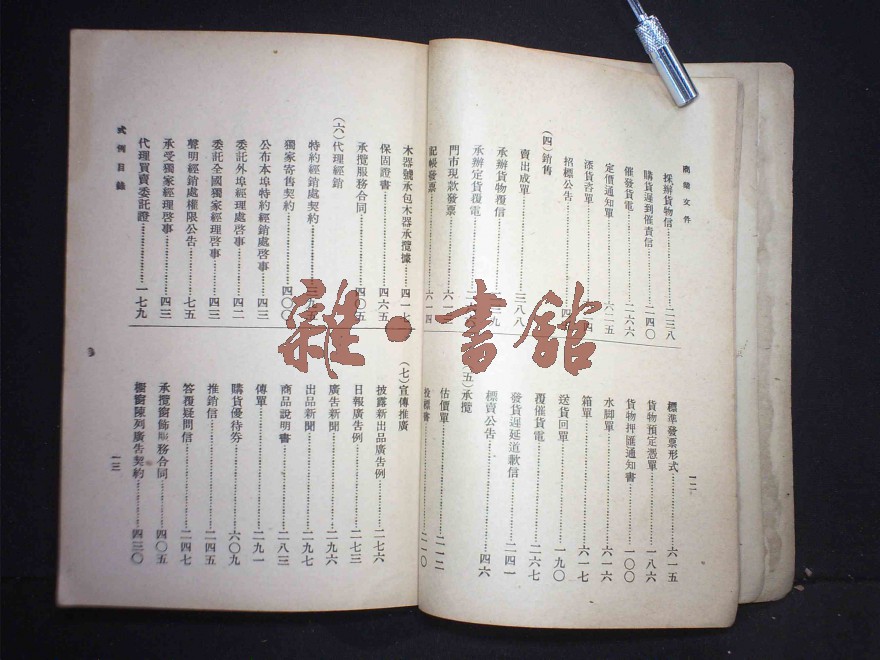 文件
採辦貨物信……二三八
購貨遲到催責信……二四〇
催發貨電……二六六
定價通知單……六二五
漲貨咨單
招標公告
(四)銷售
賣出成單……三八八
承辦貨物覆信
承辦定貨覆電
門市現款發票……六一
記帳發票……六一四
標準發票形式……六一五
貨物預定憑單……一八六
貨物押匯通知書……一〇〇
水脚單……六一六
箱單……六一七
送貨回單……一九〇
覆催貨電……二六七
發貨遲延道歉信……二四一
標賣公告……四六
(五)承攬
估價單……二一二
投標書……二一〇
一二
木器號承包木器承攬據……四一七
保固證書……四六五
承攬服務合同……四〇五
(六)代理經銷
特約經銷處契約……三九五
獨家寄售契約……四〇〇
公布本埠特約經銷處啓事……四三
委託外埠經理處啓事……四二
委託全國獨家經理啓事……四三
聲明經銷處權限公告……七五
承受獨家經理啓事……四三
代理買賣委託證……一七九
式例目錄
(七)宣傳推廣
披露新出品廣告例……二七六
日報廣告例……二七三
廣告新聞……二九六
出品新聞……二九七
商品說明書……二八三
傳單……二九一
購貨優待券……六〇九
推銷信……二四五
答覆疑問信……二四七
承攬窗飾服務合同……四〇五
櫥窗陳列廣告契約……四三〇
一三
雜·書館